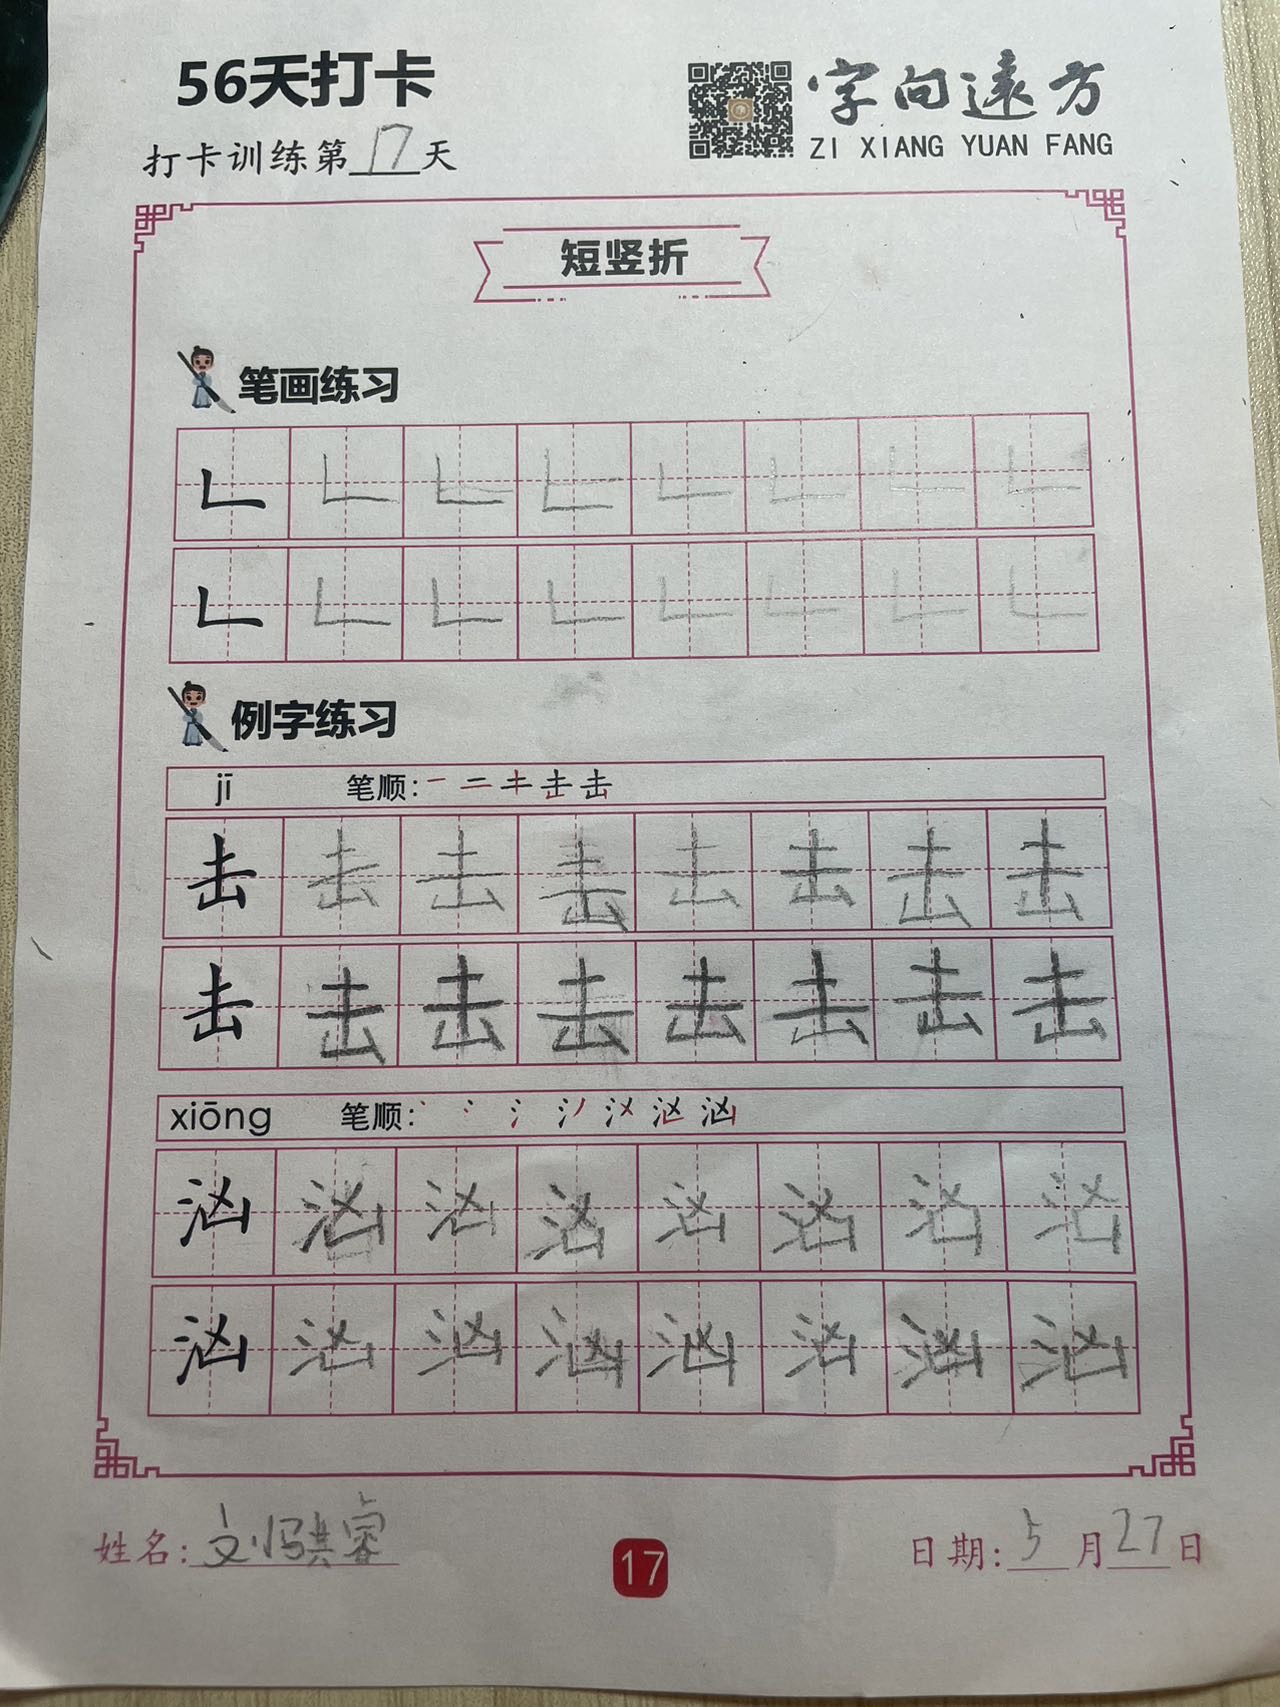 56天打卡
字向远方
打卡训练第17天
ZI XIANG YUAN FANG
短竖折
笔画练习
例字练习
jī 笔顺:
击 击 击 击 击 击 击 击
击 击 击 击 击 击 击 击
xiōng 笔顺:
汹 汹 汹 汹 汹 汹 汹 汹
汹 汹 汹 汹 汹 汹 汹 汹
姓名:刘骐睿
17
日期:5月27日